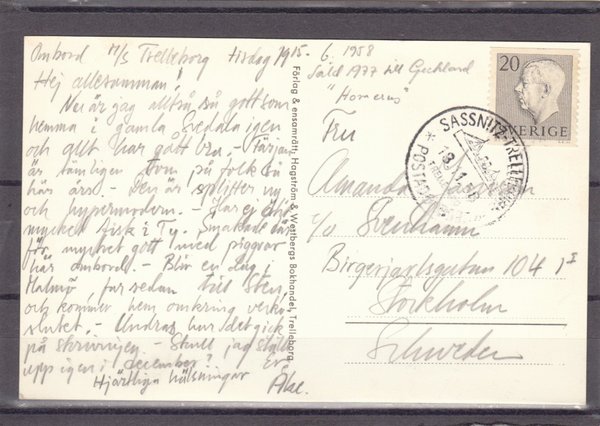 Ombord M/S Trelleborg tisdag 1915 - 6. 1958
Såld 1977 till Grekland
"Homerus"
Hej allesamman!
Nu är jag alltså så gott som
hemma i gamla Svedala igen
och allt har gått bra. - Färjan
är nämligen tom på folk så
här års. - Den är splitter ny
och hypermodern. - Har ej ätit
mycket fisk i Ty. Smakade
för mycket gott med piggvar
här ombord. - Blir en dag i
Malmö, far sedan till Sten
och kommer hem omkring vecko
slutet. - Undrar hur det gick
på skrivningen - Skall jag ställa
upp igen i december? Er
Hjärtliga hälsningar Åke.
Förlag & ensamrätt, Hagström & Wettbergs Bokhandel, Trelleborg
20
SVERIGE
SASSNITZ-TRELLEBORG
Fru
Amanda
c/o Svenhamn
Birgerjarlsgatan 104 I
Stockholm
Schweden